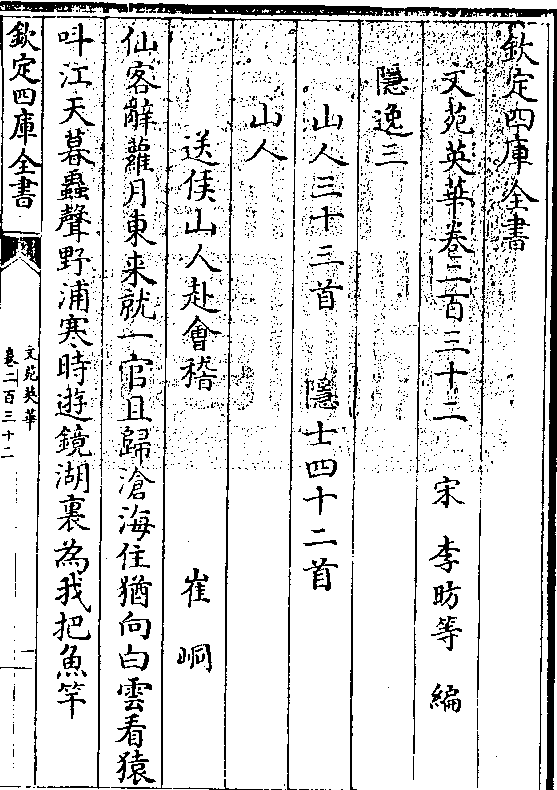 欽定四庫全書
文苑英華卷二百三十二 宋 李昉等 編
隱逸三
山人三十三首 隱士四十二首
山人
送侯山人赴會稽 崔峒
仙客辭蘿月東来就一官且歸滄海住猶向白雲看猿
呌江天暮蟲聲野浦寒時遊鏡湖裏為我把魚竿
欽定四庫全書
文苑英華
卷二百三十二
一